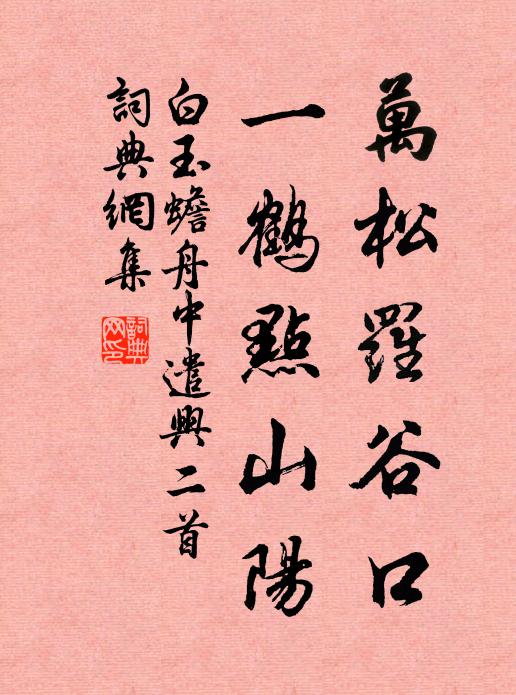 萬松羅谷口
一鶴點山陽
白玉蟾舟中遣興二首
詞典網集
詞典網印